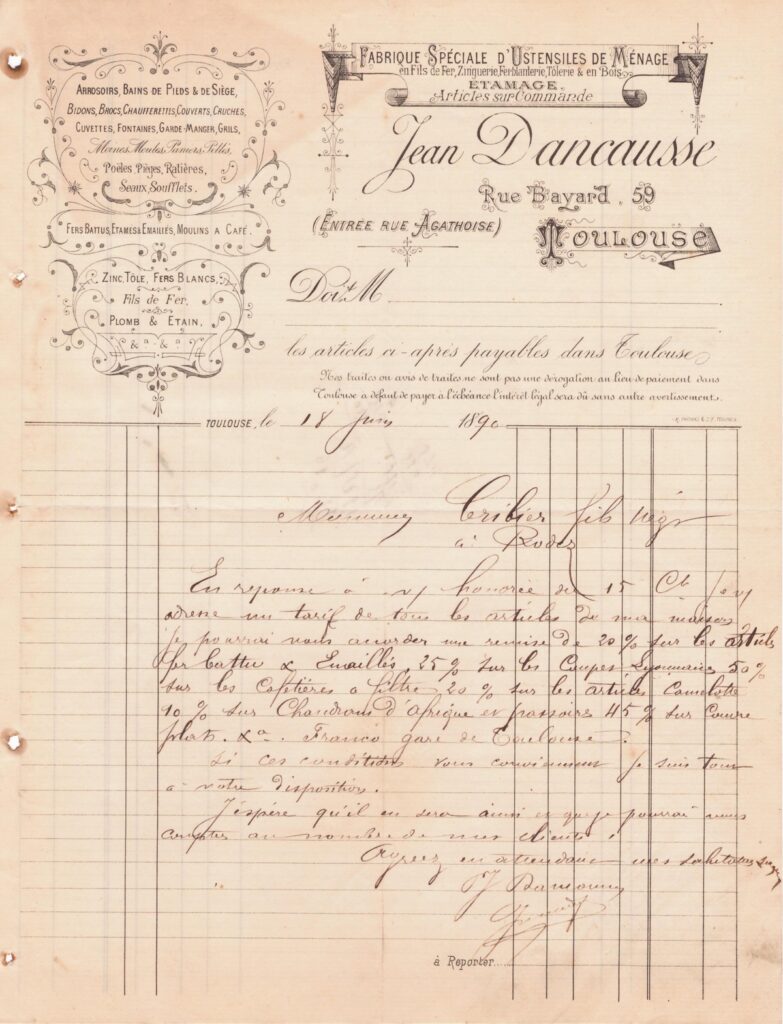 ARROSOIRS, BAINS DE PIEDS & DE SIÈGE,
BIDONS, BROCS, CHAUFFERETTES, COUVERTS, CRUCHES,
CUVETTES, FONTAINES, GARDE-MANGER, GRILS,
Moines, Moules, Paniers, Pelles,
Poëles Pièges, Ratières,
Seaux, Soufflets.
FERS BATTUS, ETAMÉS & EMAILLÉS, MOULINS A CAFÉ.
ZINC, TÔLE, FERS BLANCS,
Fils de Fer,
PLOMB & ETAIN,
&ª &ª
FABRIQUE SPÉCIALE D'USTENSILES DE MÉNAGE
en Fils de Fer, Zinguerie, Ferblanterie, Tôlerie & en Bois
ÉTAMAGE,
Articles sur Commande
Jean Dancausse
Rue Bayard, 59
(ENTRÉE RUE AGATHOISE)
TOULOUSE
Doit M
les articles ci-après payables dans Toulouse
Nos traites ou avis de traites ne sont pas une dérogation au lieu de paiement dans
Toulouse à défaut de payer à l'échéance l'intérêt légal sera dû sans autre avertissement.
TOULOUSE, le 18 Juin 1890
fils Négt
à Rodez
En reponse à honorée du 15 Ct
adresse un tarif de tous les articles de ma maison
je pourrai vous accorder une remise de 20 % sur les articles
fer battu & Emaillés, 25 % sur les Coupes Lyonnaises 50 %
sur les Cafetières a filtre 20 % sur les articles Camelotte
10 % sur Chaudrons d'Afrique et passoires 45 % sur Couvre
plats. &ª. Franco gare de Toulouse.
Si ces conditions vous conviennent je suis tout
a votre disposition.
J'espére qu'il en sera ainsi et que je pourrai vous
compter au nombre de mes clients.
Agreez en attendant mes
J Dancausse
à Reporter